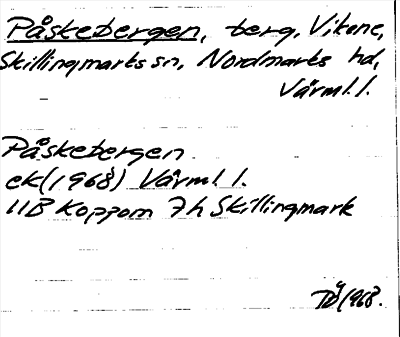 Påskebergen, berg, Vikene,
Skillingmarks sn, Nordmarks hd,
Värml. l.
Påskebergen
ek(1968) Värml. l.
11B Koppom 7h Skillingmark
1968.